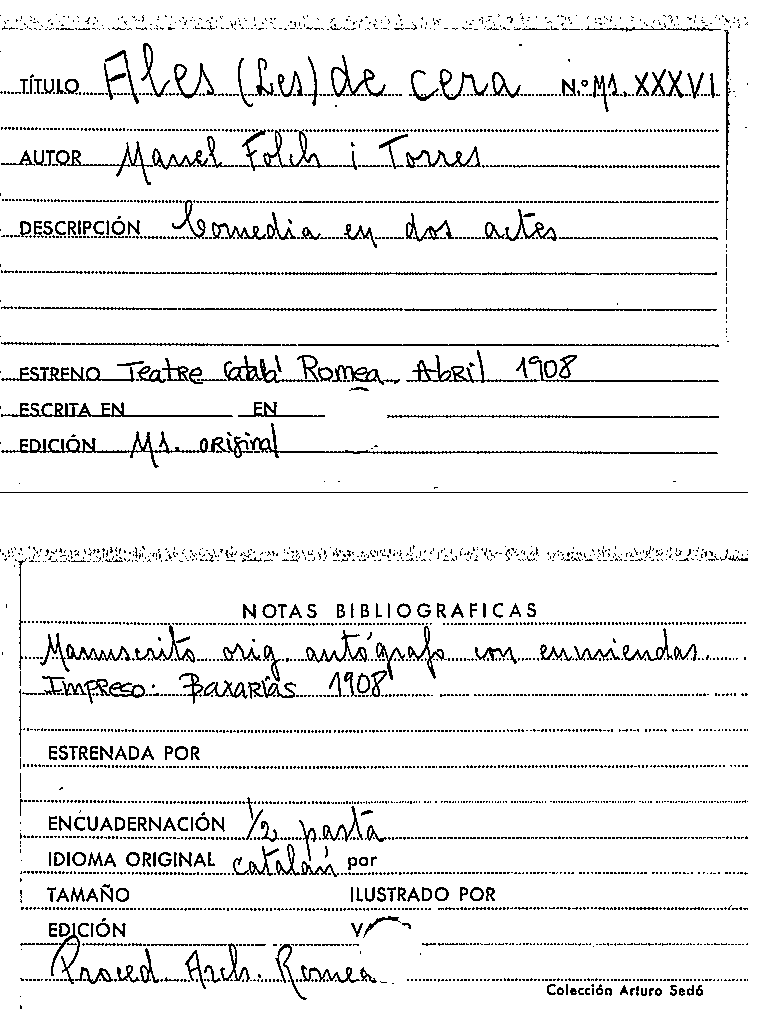 TÍTULO Ales (Les) de cera N.º Ms. XXXVI
AUTOR Manel Folch i Torres
DESCRIPCIÓN Comedia en dos actes
ESTRENO Teatre Català Romea. Abril 1908
ESCRITA EN EN
EDICIÓN Ms. original
NOTAS BIBLIOGRAFICAS
Manuscrito orig. autógrafo con enmiendas.
Impreso: Baxarias 1908
ESTRENADA POR
ENCUADERNACIÓN 1/2 pasta
IDIOMA ORIGINAL catalán por
TAMAÑO ILUSTRADO POR
EDICIÓN
Proced. Arch. Romea
Colección Arturo Sedó